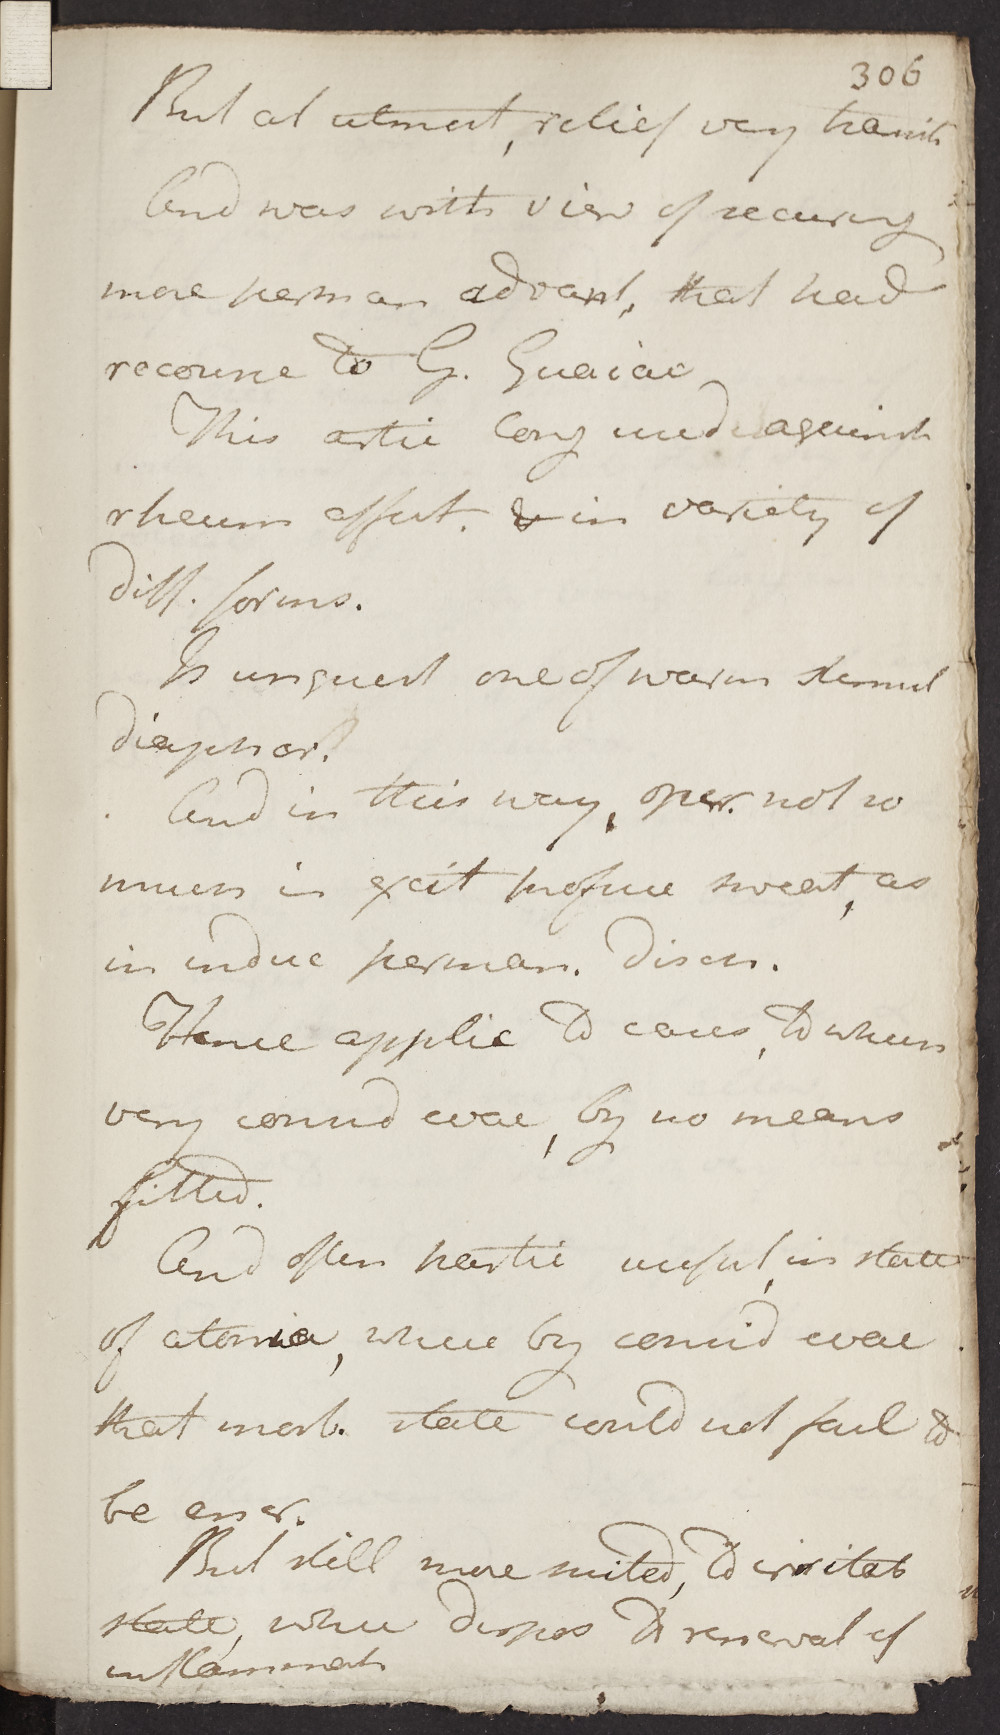 306
But at utmost, relief very transit
And was with view of securing
more perman advant, that had
recourse to G. Guaiac
This artic long used against
rheum affect. & in variety of
diff. forms.
Is unquest one of warm stimul
diaphor.
And in this way, oper. not so
much in excit profuse sweat, as
in induc perman. disch.
Hence applic to cases, to which
very consid evac, by no means
fitted.
And often partic useful, in state
of atonia, where by consid evac
that morb. state could not fail to
be encr.
But still more suited, to irritab
state, where dispos to renewal of
inflammat